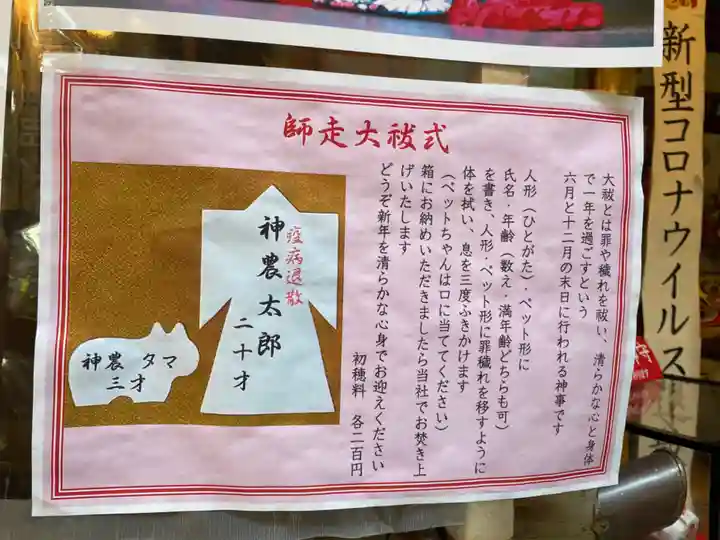 師走大祓式
大祓とは罪や穢れを祓い、清らかな心と身体
で一年を過ごすという
六月と十二月の末日に行われる神事です
人形（ひとがた）・ペット形に
氏名・年齢（数え・満年齢どちらも可）
を書き、人形・ペット形に罪穢れを移すように
体を拭い、息を三度ふきかけます
（ペットちゃんは口に当ててください）
箱にお納めいただきましたら当社でお焚き上
げいたします
どうぞ新年を清らかな心身でお迎えください
初穂料　各二百円
疫病退散
神農太郎
二十才
神農　タマ
三才
新型コロナウイルス